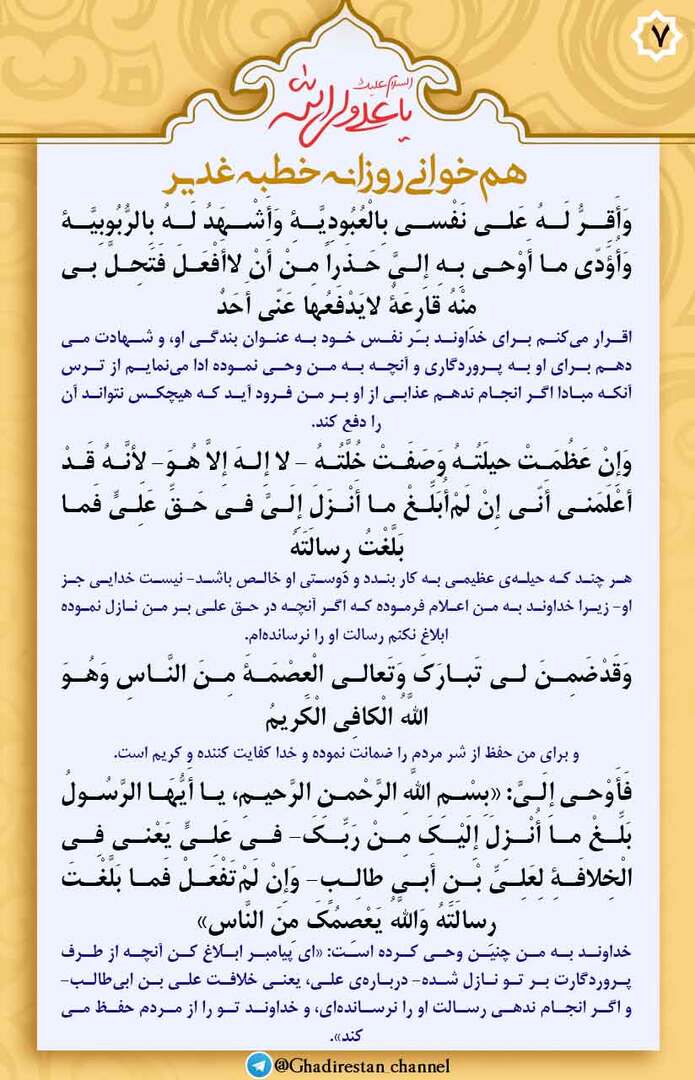 ۷
السلام علیک
یا علی ولی الله
هم خوانی روزانه خطبه غدیر
وَأُقِرُّ لَهُ عَلی نَفْسی بِالْعُبُودِیَّةِ وَأَشْهَدُ لَهُ بِالرُّبُوبِیَّةِ
وَأُؤَدّی ما أَوْحی بِهِ إِلَیَّ حَذَراً مِنْ أَنْ لاأَفْعَلَ فَتَحِلَّ بی
مِنْهُ قارِعَةٌ لایَدْفَعُها عَنّی أَحَدٌ
اقرار می‌کنم برای خداوند بر نفس خود به عنوان بندگی او، و شهادت می
دهم برای او به پروردگاری و آنچه به من وحی نموده ادا می‌نمایم از ترس
آنکه مبادا اگر انجام ندهم عذابی از او بر من فرود آید که هیچکس نتواند آن
را دفع کند.
وَإِنْ عَظُمَتْ حیلَتُهُ وَصَفَتْ خُلَّتُهُ – لا إِلهَ إِلاَّ هُوَ– لأَنَّهُ قَدْ
أَعْلَمَنی أَنّی إِنْ لَمْ‌أُبَلِّغْ ما أَنْزَلَ إِلَیَّ فی حَقِّ عَلِیٍّ فَما
بَلَّغْتُ رِسالَتَهُ
هر چند که حیله‌ی عظیمی به کار بندد و دوستی او خالص باشد- نیست خدایی جز
او- زیرا خداوند به من اعلام فرموده که اگر آنچه در حق علی بر من نازل نموده
ابلاغ نکنم رسالت او را نرسانده‌ام.
وَقَدْضَمِنَ لی تَبارَکَ وَتَعالی الْعِصْمَةَ مِنَ النَّاسِ وَهُوَ
اللَّهُ الْکافِی الْکَریمُ
و برای من حفظ از شر مردم را ضمانت نموده و خدا کفایت کننده و کریم است.
فَأَوْحی إِلَیَّ: «بِسْمِ اللَّهِ الرَّحْمنِ الرَّحیمِ، یا أَیُّهَا الرَّسُولُ
بَلِّغْ ما أُنْزِلَ إِلَیْکَ مِنْ رَبِّکَ– فی عَلِیٍّ یَعْنی فِی
الْخِلافَةِ لِعَلِیِّ بْنِ أَبی طالِبٍ– وَإِنْ لَمْ‌تَفْعَلْ فَما بَلَّغْتَ
رِسالَتَهُ وَاللَّهُ یَعْصِمُکَ مِنَ النَّاسِ»
خداوند به من چنین وحی کرده است: «ای پیامبر ابلاغ کن آنچه از طرف
پروردگارت بر تو نازل شده- درباره‌ی علی، یعنی خلافت علی بن ابی‌طالب-
و اگر انجام ندهی رسالت او را نرسانده‌ای، و خداوند تو را از مردم حفظ می
کند».
@Ghadirestan_channel